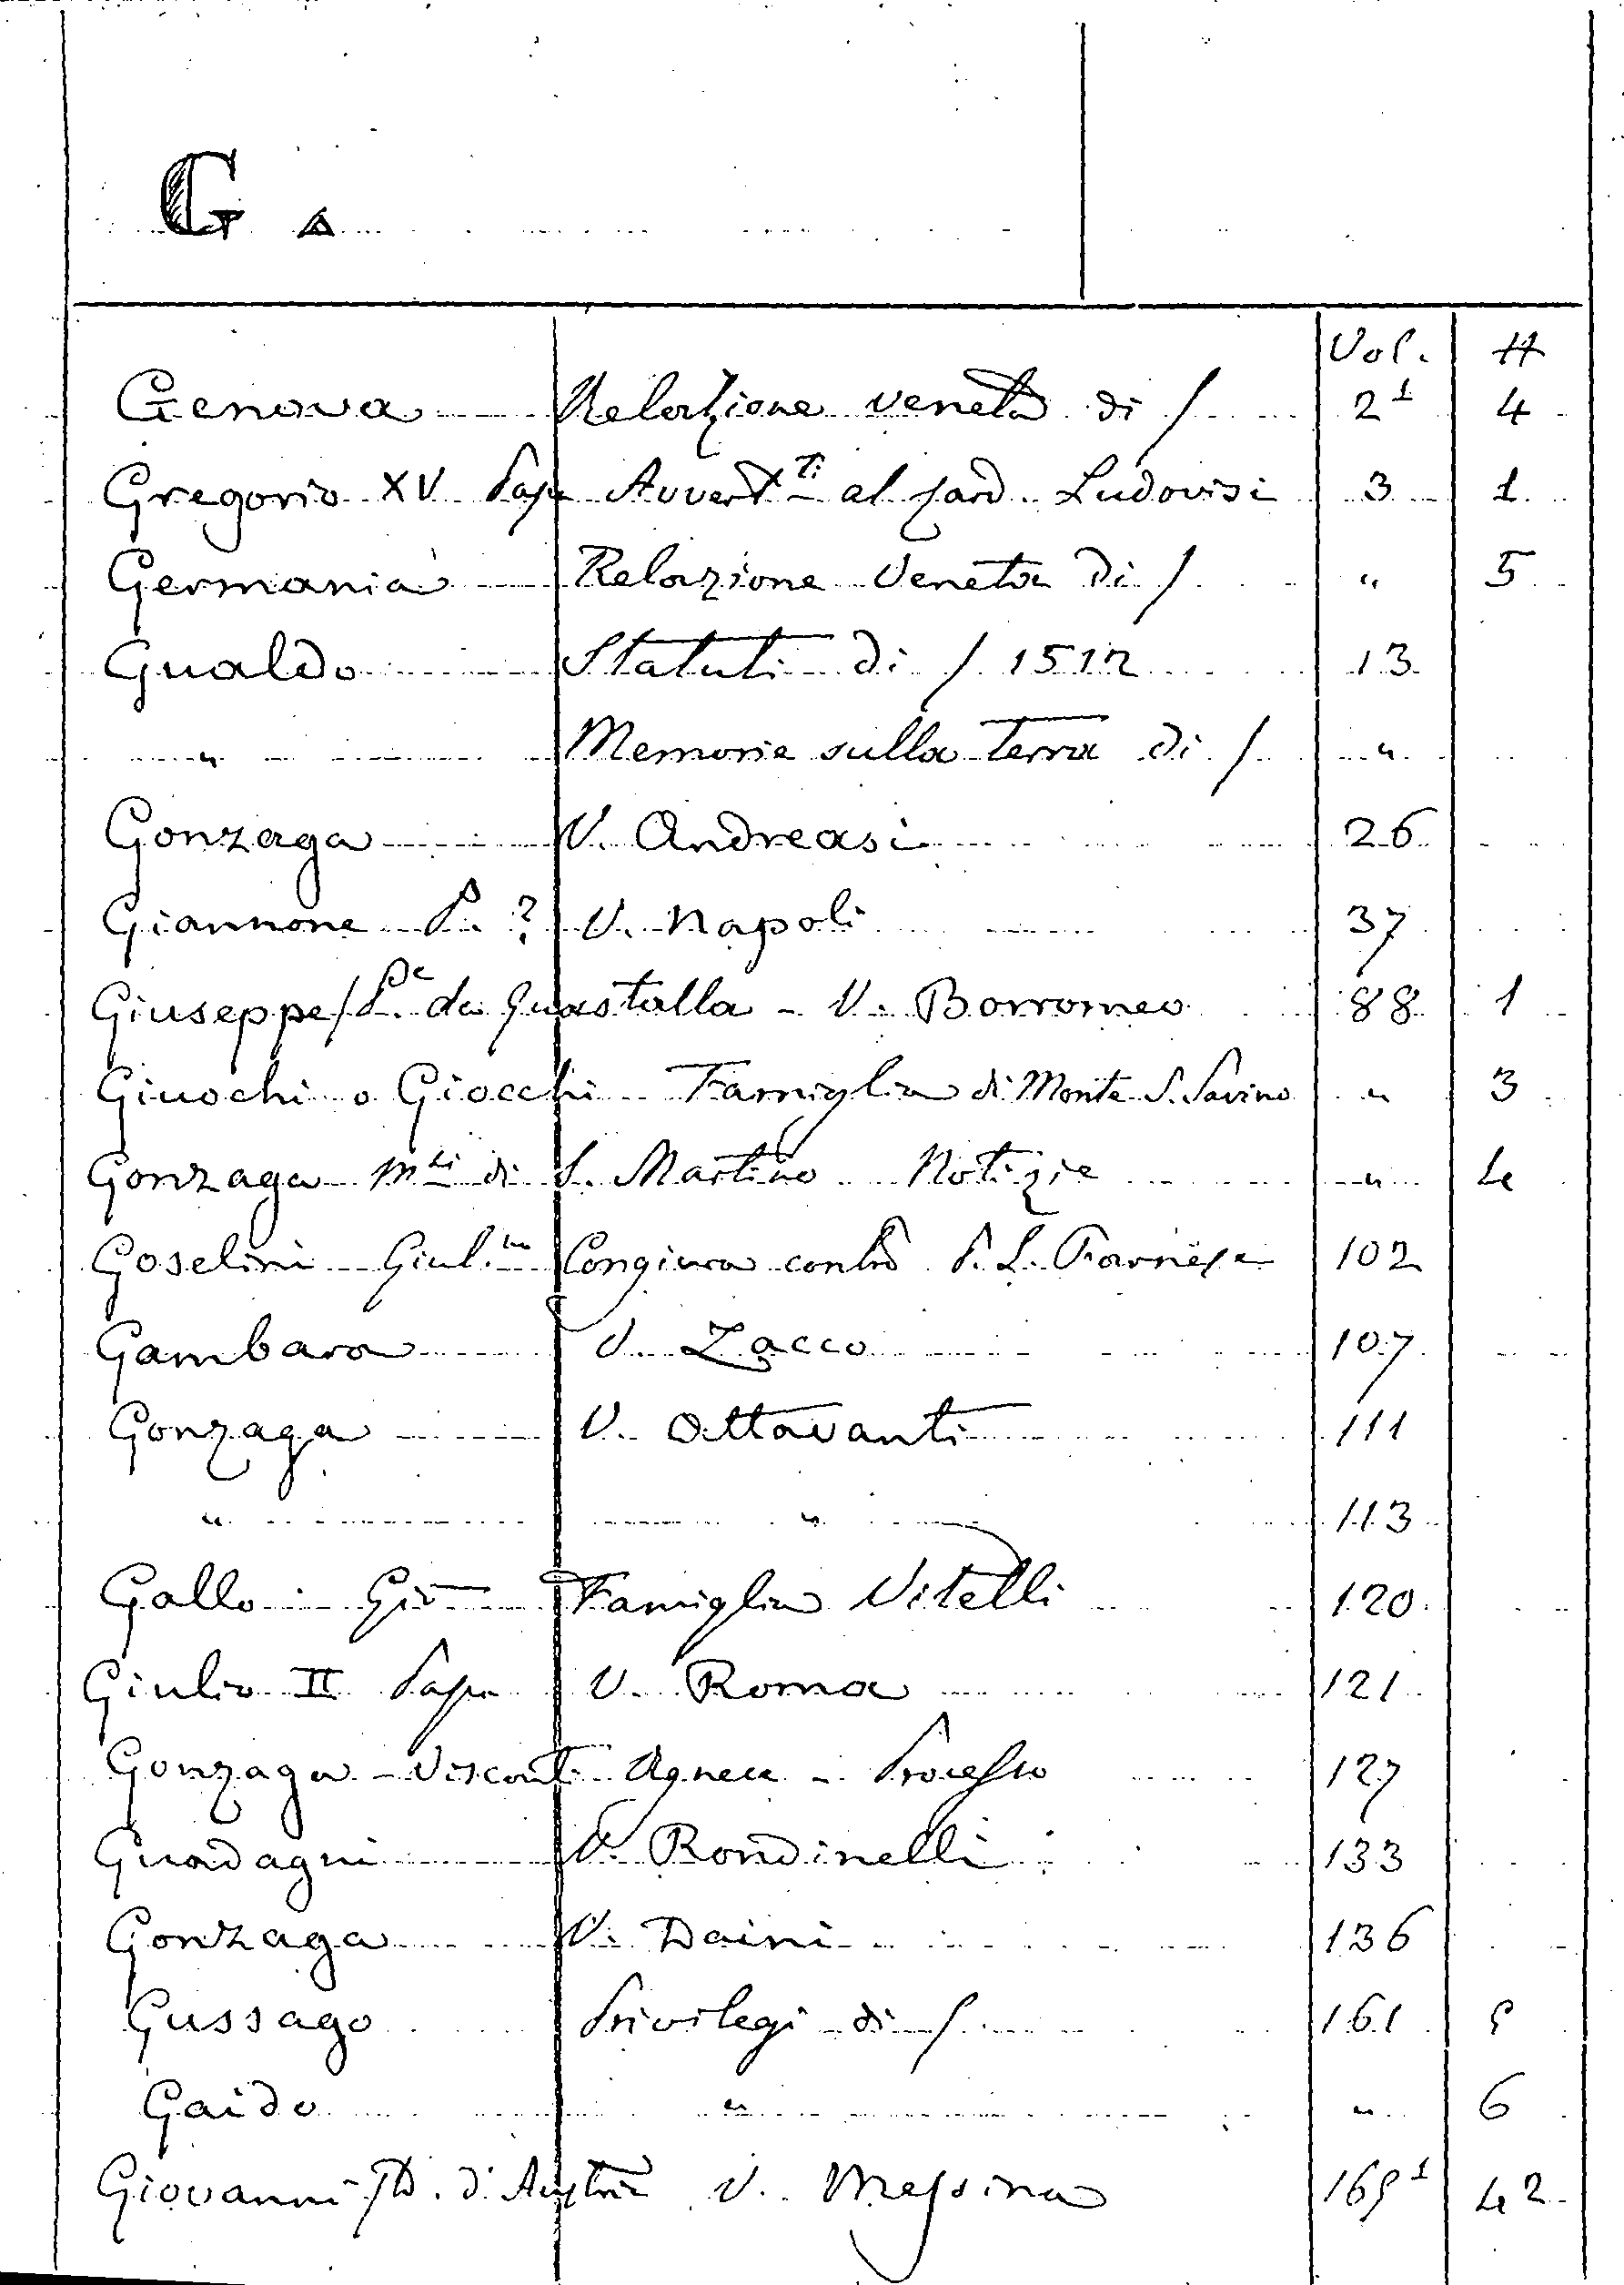 G
Vol. #
Genova Relazione veneta di / 2¹ 4
Gregorio XV Papa Avvert.ti al Card. Ludovisi 3 1
Germania Relazione Veneta di / " 5
Gualdo Statuti di / 1512 13
" Memorie sulla Terra di / "
Gonzaga V. Andreasi 26
Giannone P. ? V. Napoli 37
Giuseppe / P.pe da Guastalla - V. Borromeo 88 1
Giuochi o Giocchi Famiglia di Monte S. Savino " 3
Gonzaga M.si di S. Martino Notizie " 4
Goselini Giul.no Congiura contro P. L. Farnese 102
Gambara V. Zacco 107
Gonzaga V. Ottavanti 111
" " 113
Gallo Gio Famiglia Vitelli 120
Giulio II Papa V. Roma 121
Gonzaga - Visconti Agnese - Processo 127
Guadagni V. Rondinelli 133
Gonzaga V. Daini 136
Gussago Privilegi di / 161 5
Gaido " " 6
Giovanni / D. d'Austria V. Messina 165¹ 42